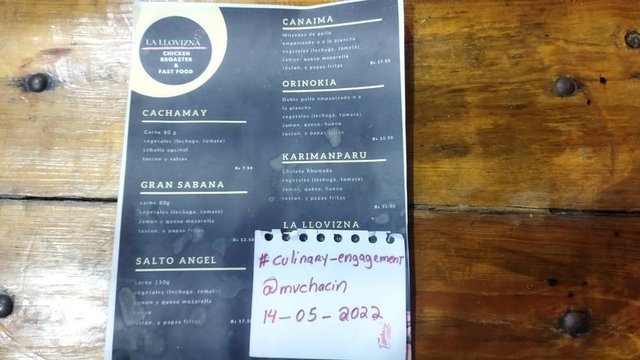 LA LLOVIZNA
CHICKEN
BROASTER
&
FAST FOOD
CACHAMAY
Carne 80 g
vegetales (lechuga, tomate)
cebolla opcinal
toston o salsas
Bs 7.50
GRAN SABANA
carne 80g.
vegetales (lechuga, tomate)
Jamon y queso mozarella
toston, y papas fritas
Bs 12.50
SALTO ANGEL
carne 150g
vegetales (lechuga, tomate)
jamon y queso mozarella
huevo
toston, y papas fritas
Bs 17.50
CANAIMA
Milanesa de pollo
empanizado o a la plancha
vegetales (lechuga, tomate)
Jamon, queso mozarella
toston, y papas fritas
Bs 17.00
ORINOKIA
Doble pollo empanizado o a
la plancha
vegetales (lechuga, tomate)
Jamon, queso, huevo
toston, y papas fritas
Bs 22.50
KARIMANPARU
Chuleta Ahumada
vegetales (lechuga, tomate)
Jamon, queso, huevo
toston, y papas fritas
LA LLOVIZNA
#culinary-engagement
@mvchacin
14-05-2022